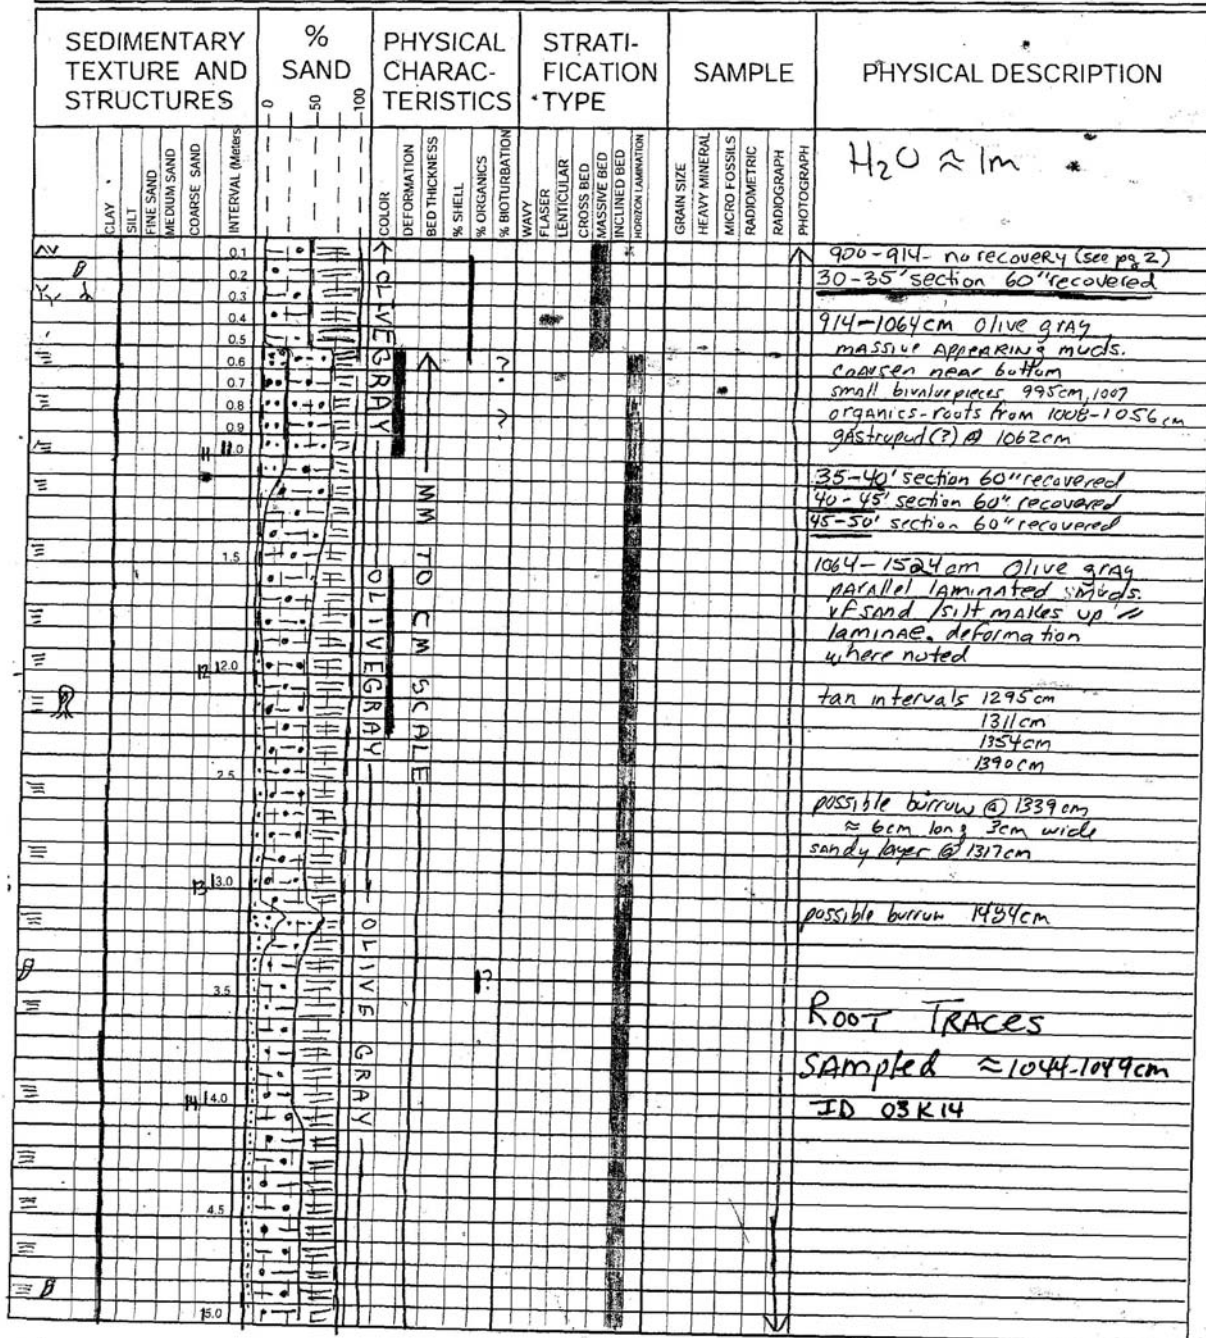 SEDIMENTARY
TEXTURE AND
STRUCTURES
%
SAND
0
50
100
PHYSICAL
CHARAC-
TERISTICS
STRATI-
FICATION
TYPE
SAMPLE
PHYSICAL DESCRIPTION
CLAY
SILT
FINE SAND
MEDIUM SAND
COARSE SAND
INTERVAL (Meters
COLOR
DEFORMATION
BED THICKNESS
% SHELL
% ORGANICS
% BIOTURBATION
WAVY
FLASER
LENTICULAR
CROSS BED
MASSIVE BED
INCLINED BED
HORIZON LAMINATION
GRAIN SIZE
HEAVY MINERAL
MICRO FOSSILS
RADIOMETRIC
RADIOGRAPH
PHOTOGRAPH
H2O ≈ 1m
0.1
0.2
0.3
0.4
0.5
0.6
0.7
0.8
0.9
11 11.0
1.5
12 12.0
2.5
13 13.0
3.5
14 14.0
4.5
15.0
OLIVE GRAY
OLIVE GRAY
OLIVE GRAY
MM TO CM SCALE
?
?
?
900-914- no recovery (see pg 2)
30-35' section 60" recovered
914-1064cm Olive gray
massive appearing muds.
coarsen near bottom
small bivalve pieces 995cm, 1007
organics-roots from 1008-1056 cm
gastropod (?) @ 1062cm
35-40' section 60" recovered
40-45' section 60" recovered
45-50' section 60" recovered
1064-1524cm Olive gray
parallel laminated muds.
vf sand/silt makes up //
laminae. deformation
where noted
tan intervals 1295cm
1311cm
1354cm
1390cm
possible burrow @ 1339cm
≈ 6cm long 3cm wide
sandy layer @ 1317cm
possible burrow 1434cm
ROOT TRACES
SAMPled ≈1044-1049cm
ID 03K14